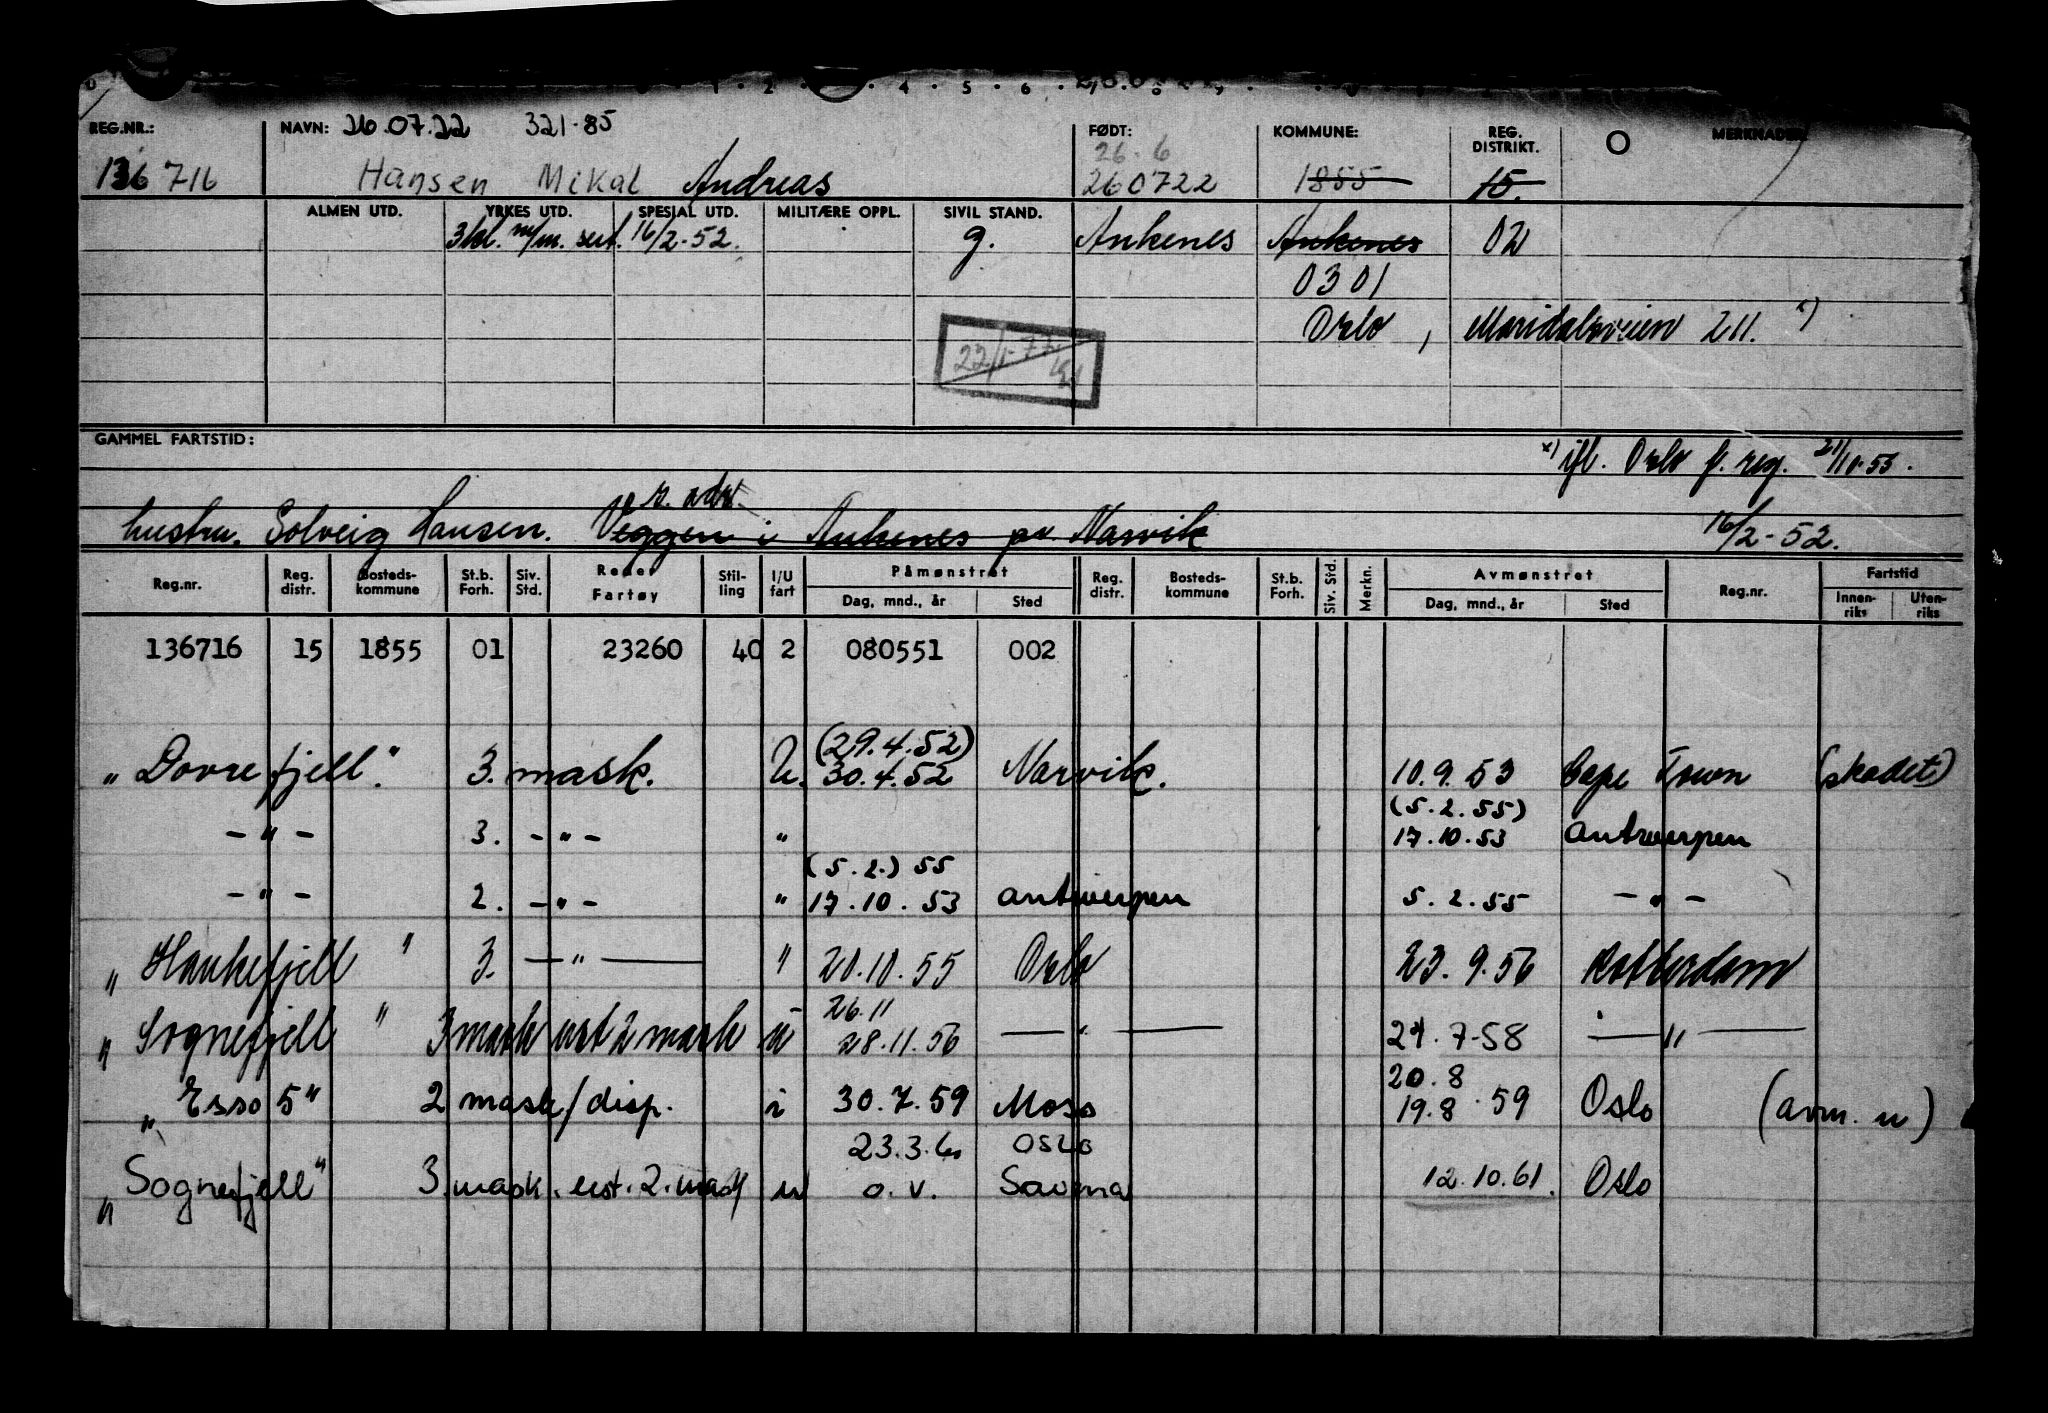 REG.NR.: NAVN: 26.07.22 321-85 FØDT: KOMMUNE: REG. DISTRIKT. MERKNADER:
26.6
136716 Hansen Mikal Andreas 260722 1855 15.
ALMEN UTD. YRKES UTD. SPESIAL UTD. MILITÆRE OPPL. SIVIL STAND.
3kl. m/m. sert. 16/2-52. g. Ankenes Ankenes 02
0301
Oslo, Maridalsveien 211. x)
GAMMEL FARTSTID:
x) ifl. Oslo f. reg. 21/10.55.
hustru. Solveig Hansen. Veggen i Ankenes pr. Narvik 16/2-52.
Reg.nr. Reg. distr. Bosteds- kommune St.b. Forh. Siv. Std. Reder Fartøy Stil- ling I/U fart Påmønstret Reg. distr. Bosteds- kommune St.b. Forh. Siv. Std. Merkn. Avmønstret Reg.nr. Fartstid
Dag, mnd., år Sted Dag, mnd., år Sted Innen- riks Uten- riks
136716 15 1855 01 23260 40 2 080551 002
(29.4.52)
"Dovrefjell". 3. mask. U. 30.4.52 Narvik. 10.9.53 Cape Town (skadet)
(5.2.55)
- " - 3. - " - " 17.10.53 Antwerpen
(5.2.) 55
- " - 2. - " - " 17.10.53 Antwerpen 5.2.55 - " -
"Haukefjell" 3. - " - " 20.10.55 Oslo 23.9.56 Rotterdam
26.11
"Sognefjell" 3 mask ust 2 mask u 28.11.56 - " - 24.7-58 - " -
20.8
"Esso 5" 2 mask/disp. i 30.7.59 Moss 19.8.59 Oslo (avm. u)
23.3.61 OSLO
"Sognefjell" 3. mask. ust. 2. mask u o.v. Savona 12.10.61. Oslo